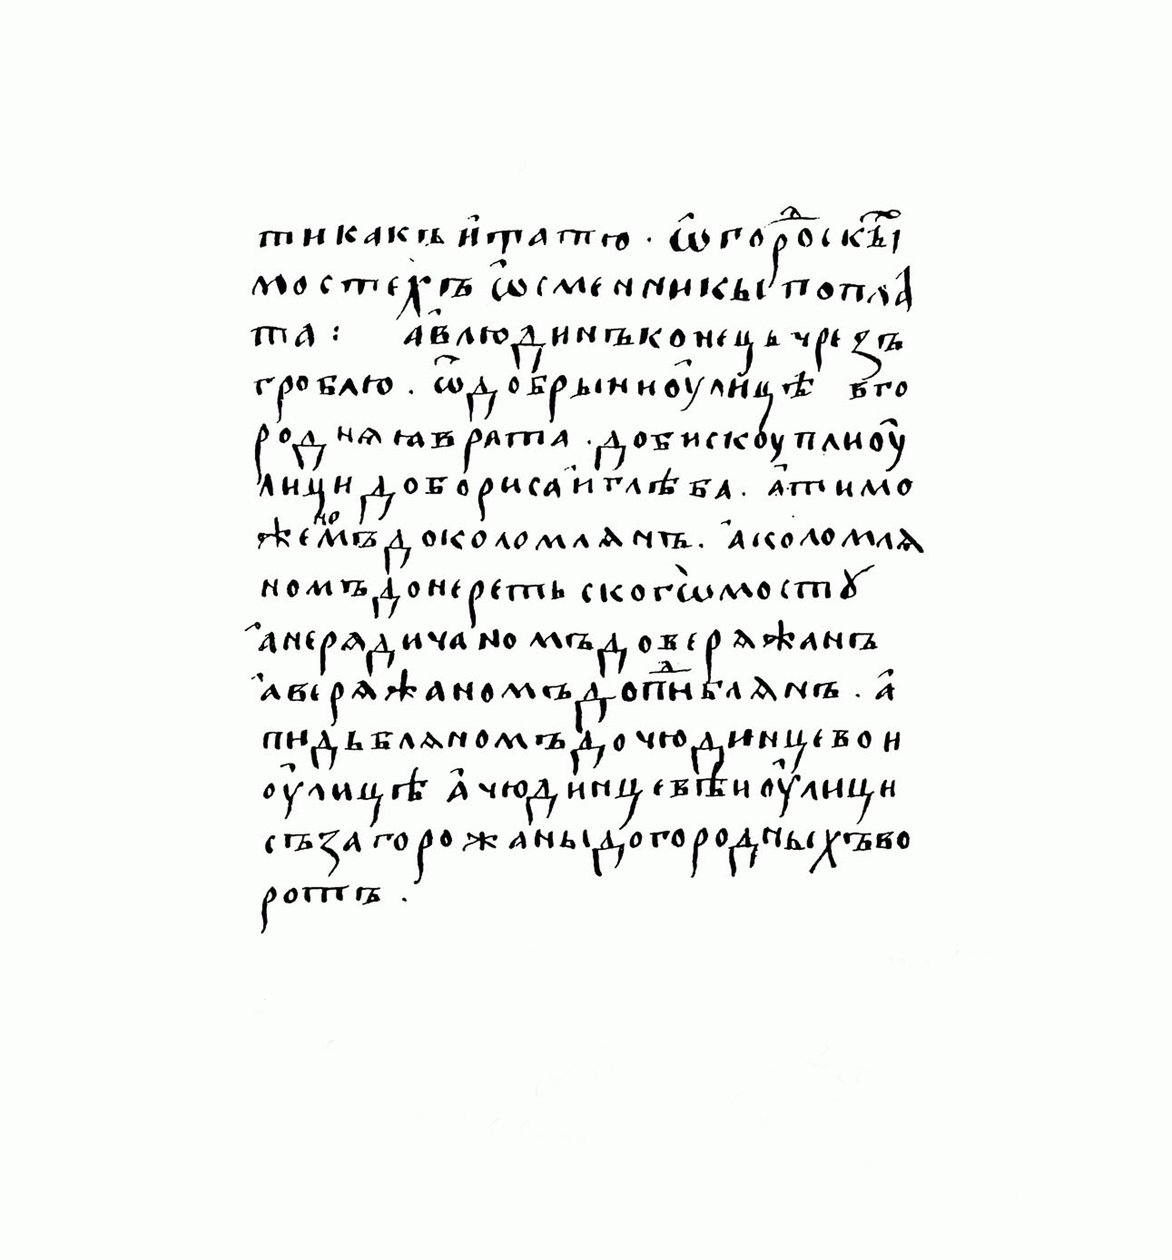 тикакъ и҆татю · ѿгорⷣоскы̑
мостехъ ѡ҆сменникы поплⷶа
та : а҆влюдинъ конець чрезъ
гроблю . ѿдобрыни ѹ҆лицѣ вго
роднѧꙗврата .добискоуплиѹ҆
лицидобориса и҆глѣба . а҆тимо
жеⷩ҇ⷪмъдоколомлѧнъ. а҆коломлѧ
номъдонеретьскогѡмостꙋ
а҆нерѧдичаномъдоверѧжанъ
а҆верѧжаномъдопиⷣблѧнъ . а҆
пидьблѧномъдочюдинцевои
ѹ҆лицѣ а҆чюдинцевѣи ѹ҆лици
съзагорожаныдогородныхъво
ротъ .